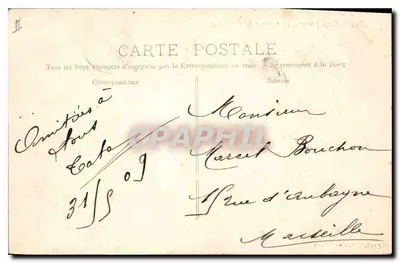 CARTE POSTALE
Tous les Pays étrangers n'acceptent pas la Correspondance au recto. (Se renseigner à la Poste)
Correspondance
Adresse
Amitiés à
tous
Tata
31/5 09
CPAPHIL
Monsieur
Marcel Bouchon
15 rue d'Aubagne
Marseille